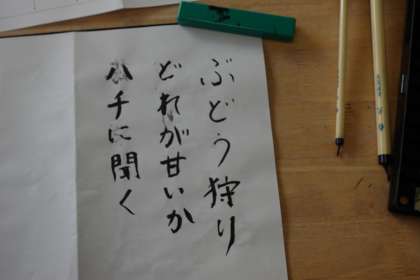 ぶどう狩り
どれが甘いか
ハチに聞く